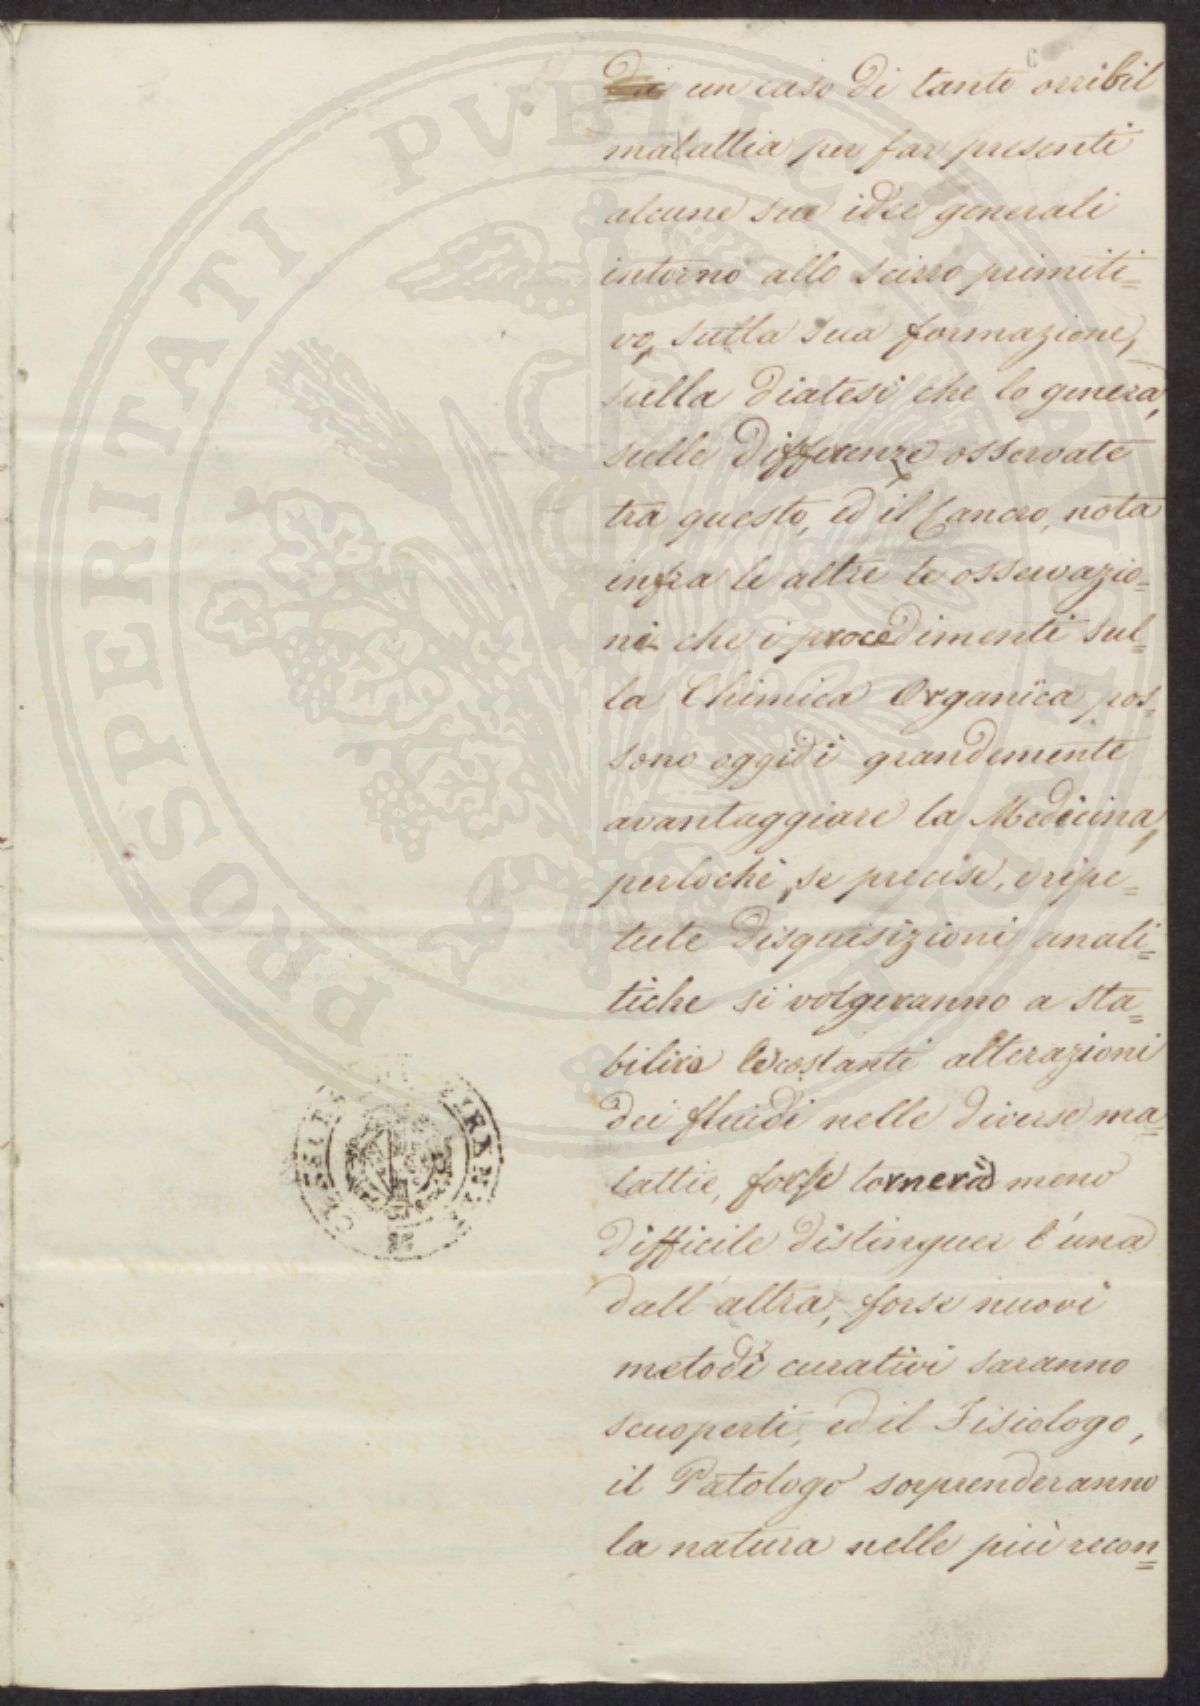 6
Di un caso di tanto orribil
malattia per far presenti
alcune sue idee generali
intorno allo scirro primiti=
vo, sulla sua formazione,
sulla diatesi che lo genera,
sulle differenze osservate
tra questo, ed il Cancro, nota
infra le altre le osservazio=
ni che i procedimenti sul=
la Chimica Organica pos=
sono oggidì grandemente
avantaggiare la Medicina,
perlochè, se precise, e ripe=
tute disquisizioni anali=
tiche si volgeranno a sta=
bilire le costanti alterazioni
dei fluidi nelle diverse ma=
lattie, forse tornerà meno
difficile distinguer l'una
dall'altra, forse nuovi
metodi curativi saranno
scuoperti, ed il Fisiologo,
il Patologo sorprenderanno
la natura nelle più recon=
PROSPERITATI PVBLICAE